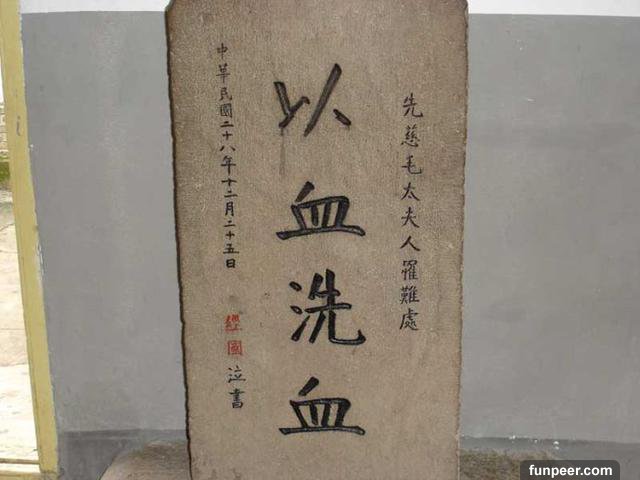 先慈毛太夫人罹難處
以血洗血
中華民國二十八年十二月二十五日
經國 泣書
funpeer.com